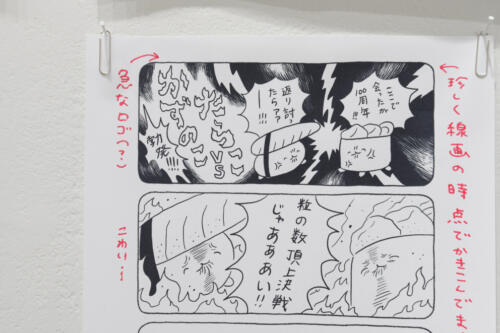 珍しく線画の時点でかきこんでま
急なロゴ(?)
ここで
会ったが
100周年!!
返り討ち
だらァァ
ー!!!!
たらこ
VS
かずのこ
勃発!!!!
粒の数
頂上決戦
じゃあああい!!
こわい…